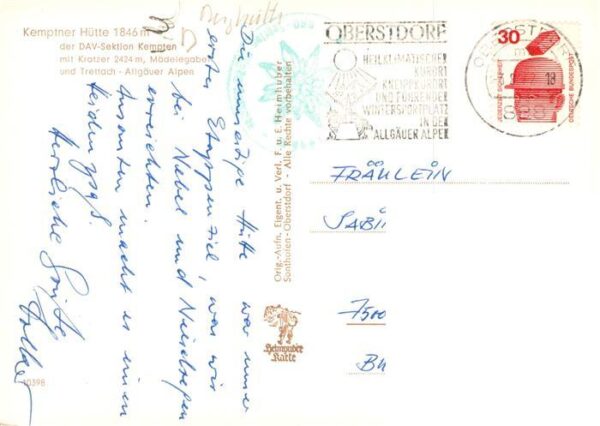 Kemptner Hütte 1846 m
der DAV-Sektion Kempten
mit Kratzer 2424 m, Mädelegabel
und Trettach - Allgäuer Alpen
Die umseitige Hütte war unser
erstes Etappenziel, was wir
bei Nebel und Nieselregen
erreichten.
Ansonsten macht es einen
Heidenspaß.
Herzliche Grüße
Volker
10398
Orig.-Aufn., Eigent. u. Verl. F. u. E. Heimhuber
Sonthofen-Oberstdorf - Alle Rechte vorbehalten
Heimhuber
Karte
OBERSTDORF
HEILKLIMATISCHER
KURORT
KNEIPPKURORT
UND FÜHRENDER
WINTERSPORTPLATZ
IN DEN
ALLGÄUER ALPEN
OBERSTDORF
18
30
JEDERZEIT SICHERHEIT
DEUTSCHE BUNDESPOST
FRÄULEIN
SABI
7500